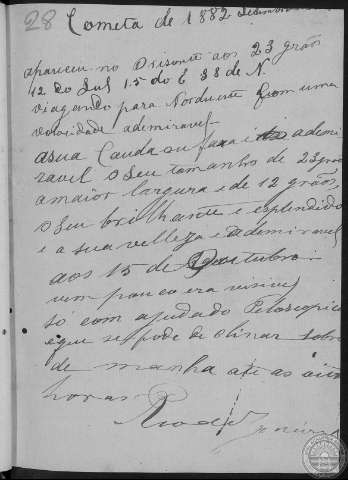 28 Cometa de 1882
apareceu no Orisonte aos 23 grãos
12 do Sul 15 do E 38 de N.
viagando para Nordueste com uma
velosidade ademiravel
asua Cauda ademi
ravel o Seu tamanho de 23 grao
a maior largura e de 12 grãos,
o Seu brilhante e esplendido
e a sua velleza e ademiravel
aos 15 de Outubro
vem pouco era visivel
só com ajudado Teloscopico
eque se pode o sobre
de manha ate as oito
horas
Rio de
Janeiro